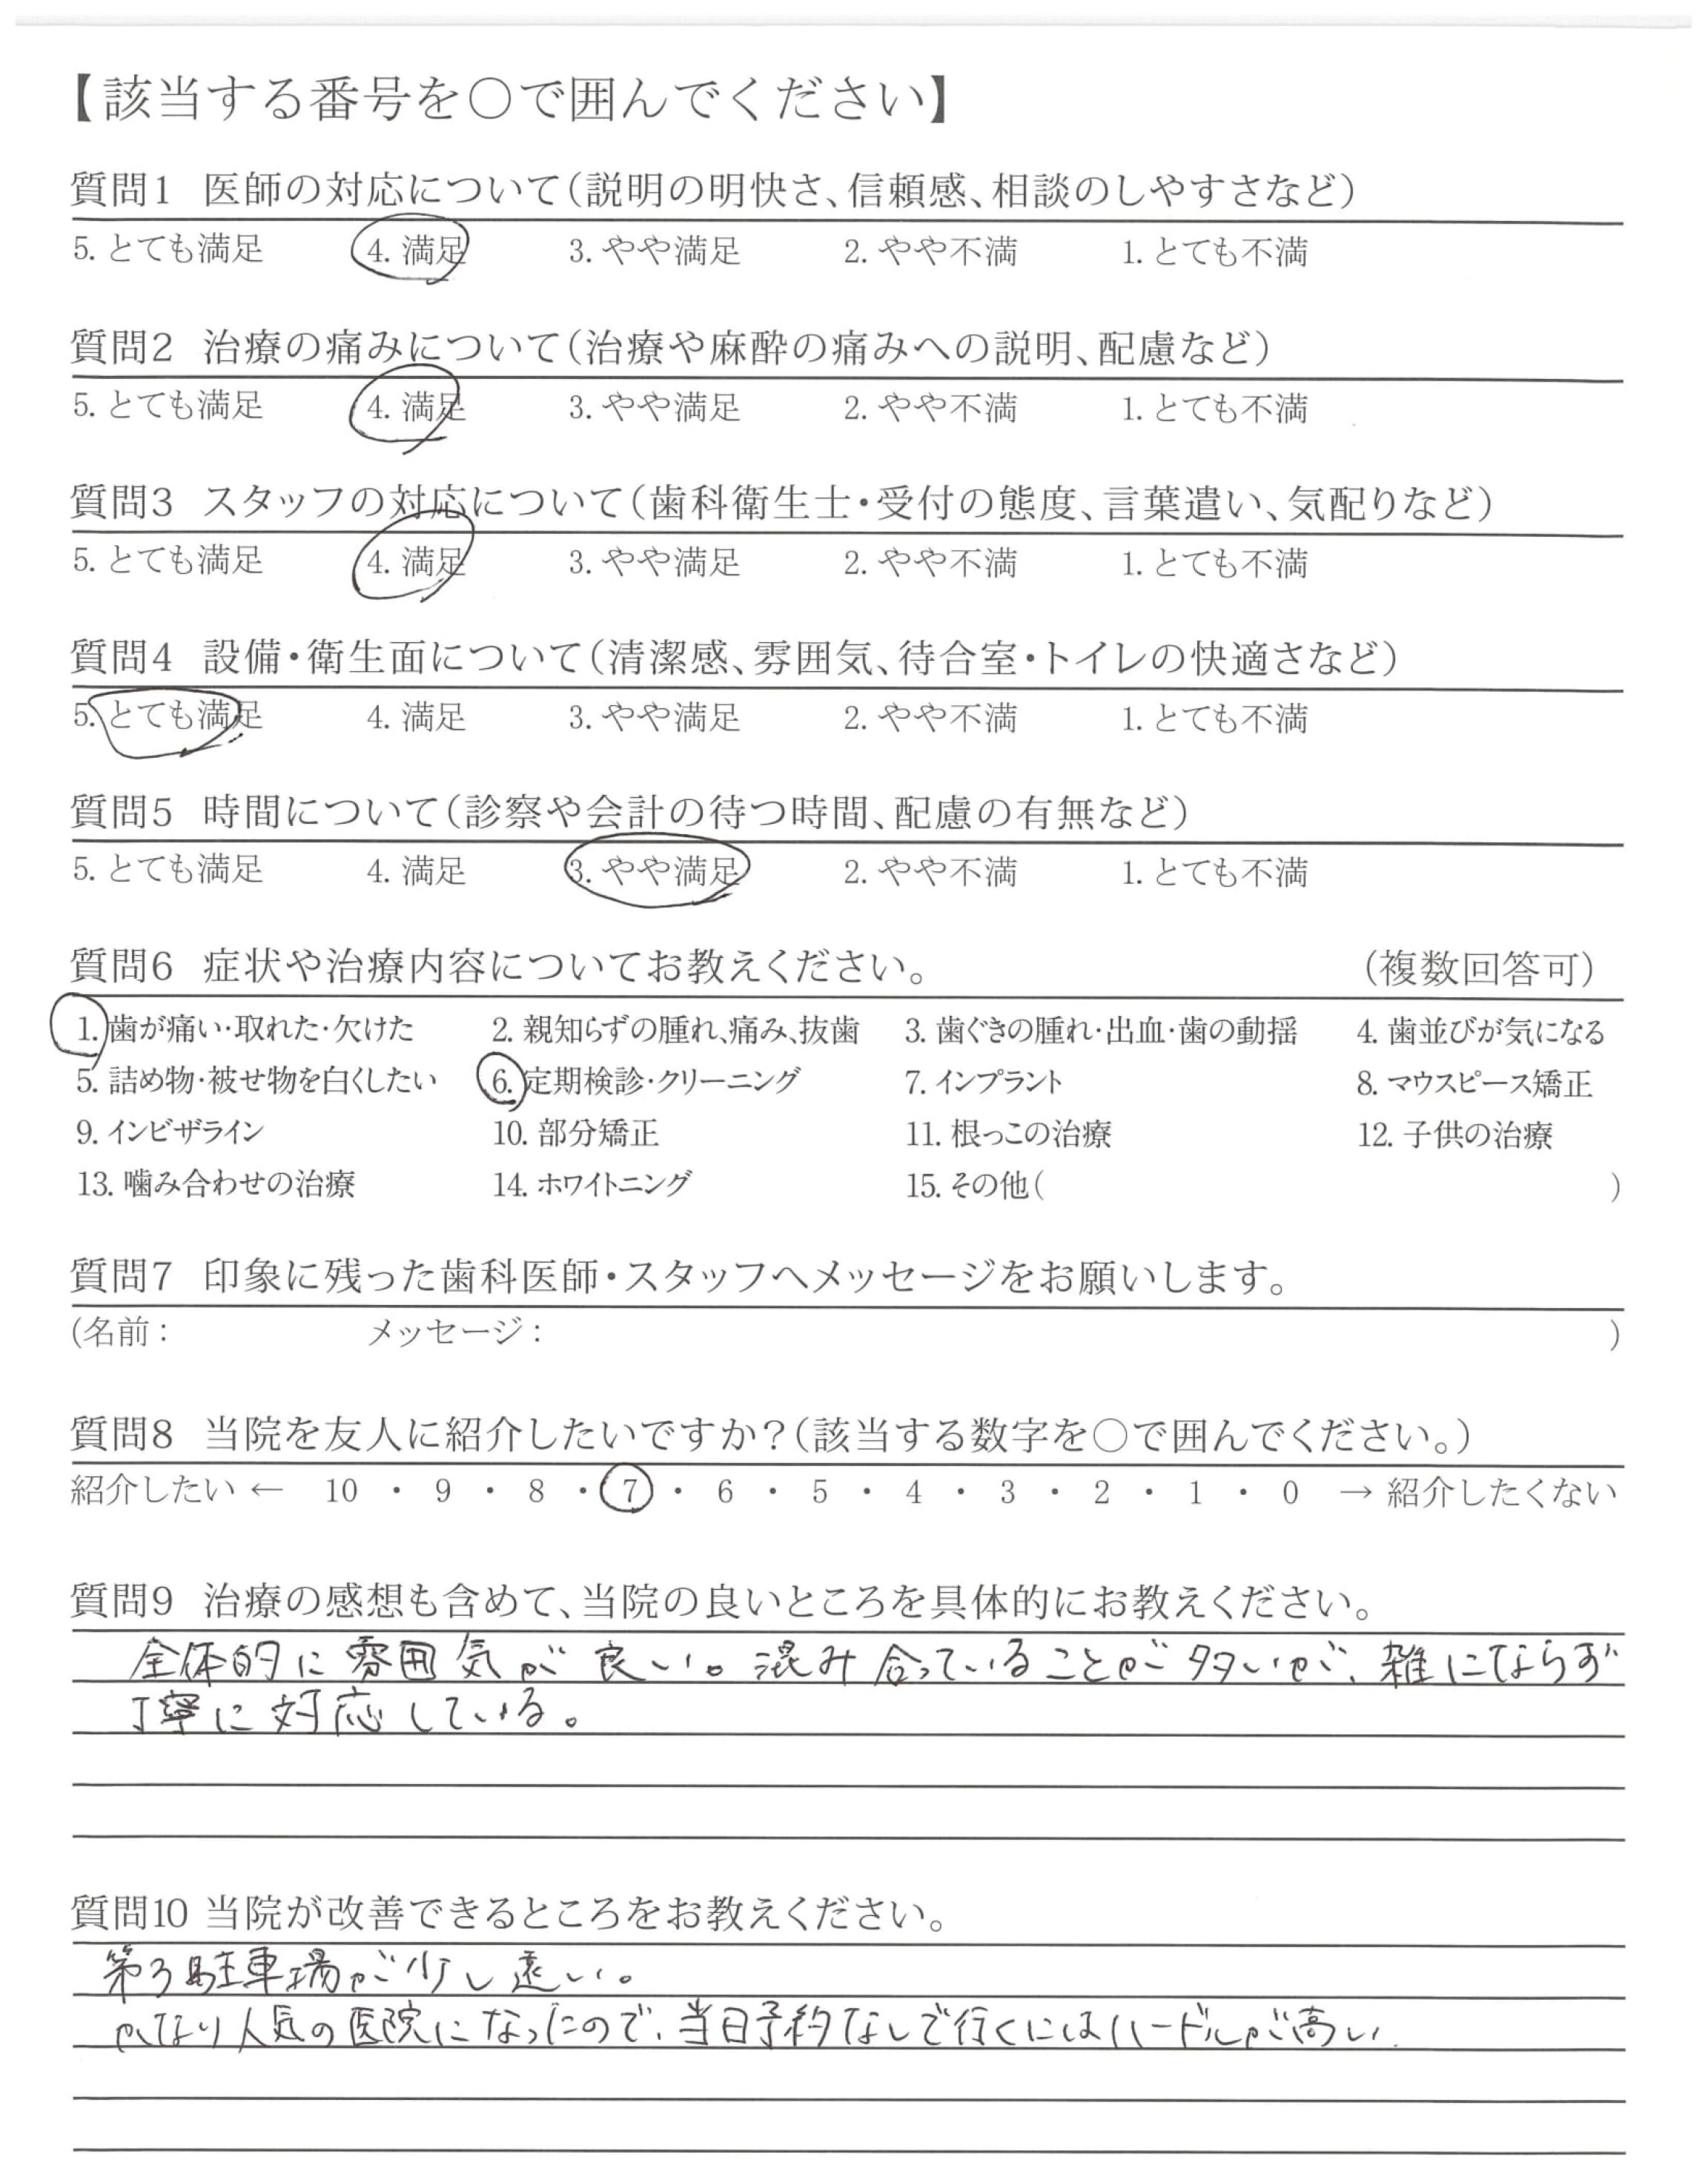 【該当する番号を○で囲んでください】
質問1 医師の対応について(説明の明快さ、信頼感、相談のしやすさなど)
5. とても満足 4. 満足 3. やや満足 2. やや不満 1. とても不満
質問2 治療の痛みについて(治療や麻酔の痛みへの説明、配慮など)
5. とても満足 4. 満足 3. やや満足 2. やや不満 1. とても不満
質問3 スタッフの対応について(歯科衛生士・受付の態度、言葉遣い、気配りなど)
5. とても満足 4. 満足 3. やや満足 2. やや不満 1. とても不満
質問4 設備・衛生面について(清潔感、雰囲気、待合室・トイレの快適さなど)
5. とても満足 4. 満足 3. やや満足 2. やや不満 1. とても不満
質問5 時間について(診察や会計の待つ時間、配慮の有無など)
5. とても満足 4. 満足 3. やや満足 2. やや不満 1. とても不満
質問6 症状や治療内容についてお教えください。 (複数回答可)
1. 歯が痛い・取れた・欠けた 2. 親知らずの腫れ、痛み、抜歯 3. 歯ぐきの腫れ・出血・歯の動揺 4. 歯並びが気になる
5. 詰め物・被せ物を白くしたい 6. 定期検診・クリーニング 7. インプラント 8. マウスピース矯正
9. インビザライン 10. 部分矯正 11. 根っこの治療 12. 子供の治療
13. 噛み合わせの治療 14. ホワイトニング 15. その他( )
質問7 印象に残った歯科医師・スタッフへメッセージをお願いします。
(名前: メッセージ: )
質問8 当院を友人に紹介したいですか?(該当する数字を○で囲んでください。)
紹介したい ← 10 ・ 9 ・ 8 ・ 7 ・ 6 ・ 5 ・ 4 ・ 3 ・ 2 ・ 1 ・ 0 → 紹介したくない
質問9 治療の感想も含めて、当院の良いところを具体的にお教えください。
全体的に雰囲気が良い。混み合っていることが多いが、雑にならず
丁寧に対応している。
質問10 当院が改善できるところをお教えください。
第3駐車場が少し遠い。
かなり人気の医院になったので、当日予約なしで行くにはハードルが高い